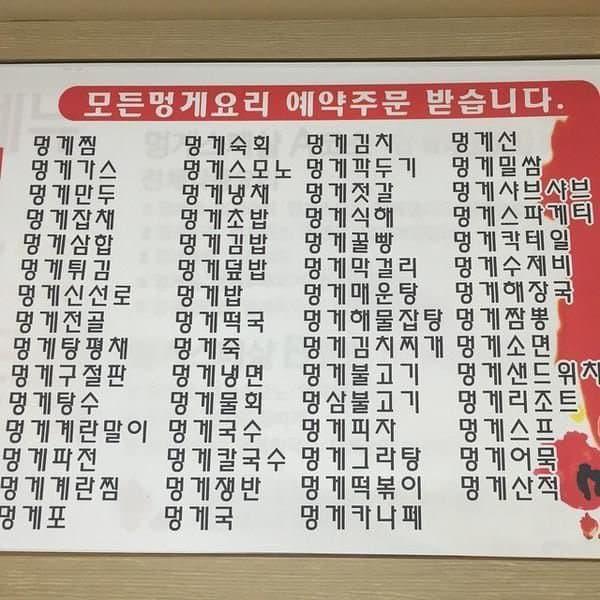 모든멍게요리 예약주문 받습니다.
멍게찜
멍게가스
멍게만두
멍게잡채
멍게삼합
멍게튀김
멍게신선로
멍게전골
멍게탕평채
멍게구절판
멍게탕수
멍게계란말이
멍게파전
멍게계란찜
멍게포
멍게숙회
멍게스모노
멍게냉채
멍게초밥
멍게김밥
멍게덮밥
멍게밥
멍게떡국
멍게죽
멍게냉면
멍게물회
멍게국수
멍게칼국수
멍게쟁반
멍게국
멍게김치
멍게깍두기
멍게젓갈
멍게식해
멍게꿀빵
멍게막걸리
멍게매운탕
멍게해물잡탕
멍게김치찌개
멍게불고기
멍삼불고기
멍게피자
멍게그라탕
멍게떡볶이
멍게카나페
멍게선
멍게밀쌈
멍게샤브샤브
멍게스파게티
멍게칵테일
멍게수제비
멍게해장국
멍게짬뽕
멍게소면
멍게샌드위치
멍게리조트
멍게스프
멍게어묵
멍게산적